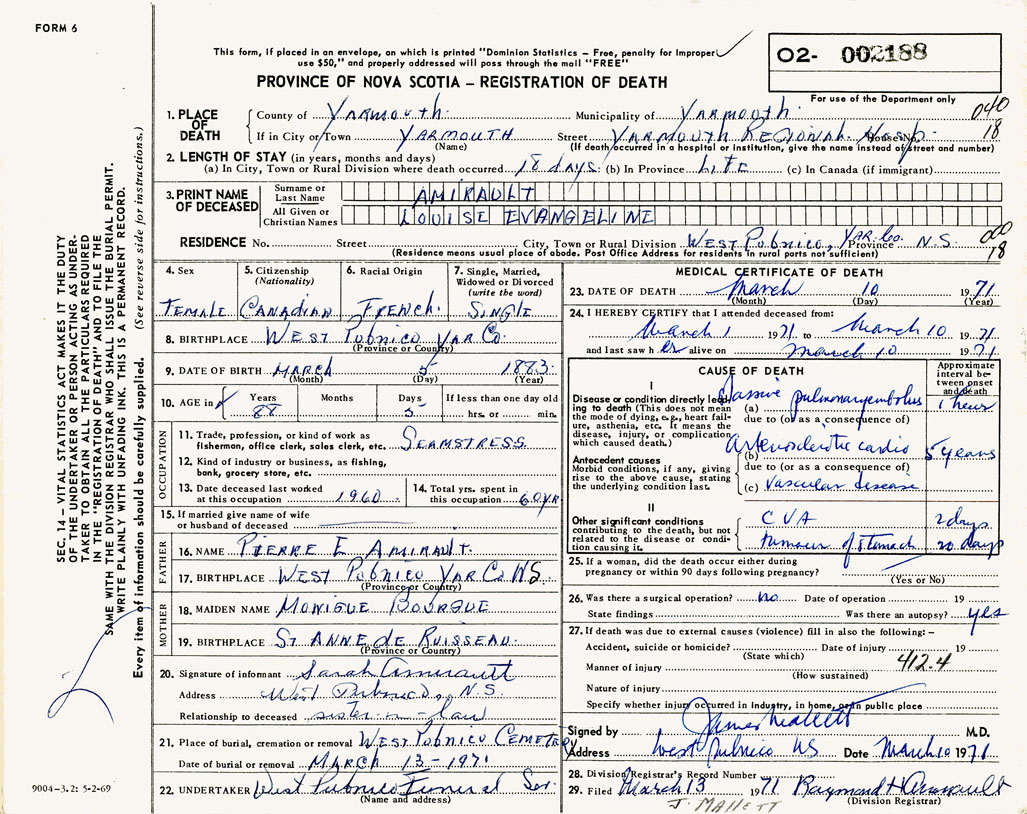 FORM 6
This form, if placed in an envelope, on which is printed "Dominion Statistics – Free, penalty for improper
use $50," and properly addressed will pass through the mail "FREE"
O2- 002188
PROVINCE OF NOVA SCOTIA – REGISTRATION OF DEATH
For use of the Department only
1. PLACE OF DEATH
County of YARMOUTH Municipality of YARMOUTH 040
If in City or Town YARMOUTH Street YARMOUTH REGIONAL Hosp. House No. 18
(Name) (If death occurred in a hospital or institution, give the name instead of street and number)
2. LENGTH OF STAY (in years, months and days)
(a) In City, Town or Rural Division where death occurred 18 days. (b) In Province LIFE (c) In Canada (if immigrant)
3. PRINT NAME OF DECEASED
Surname or Last Name AMIRAULT
All Given or Christian Names LOUISE EVANGELINE
RESIDENCE No. Street City, Town or Rural Division WEST PUBNICO, YAR. Co. Province N.S. 000 18
(Residence means usual place of abode. Post Office Address for residents in rural parts not sufficient)
4. Sex FEMALE
5. Citizenship (Nationality) CANADIAN
6. Racial Origin FRENCH.
7. Single, Married, Widowed or Divorced (write the word) SINGLE
8. BIRTHPLACE WEST PUBNICO YAR Co.
(Province or Country)
9. DATE OF BIRTH MARCH 5 1883.
(Month) (Day) (Year)
10. AGE in Years 88 Months Days 5 If less than one day old hrs. or min.
OCCUPATION
11. Trade, profession, or kind of work as
fisherman, office clerk, sales clerk, etc. SEAMSTRESS
12. Kind of industry or business, as fishing,
bank, grocery store, etc.
13. Date deceased last worked
at this occupation 1960
14. Total yrs. spent in
this occupation 60 YR
15. If married give name of wife
or husband of deceased
FATHER
16. NAME PIERRE E AMIRAULT.
17. BIRTHPLACE WEST PUBNICO YAR Co NS
(Province or Country)
MOTHER
18. MAIDEN NAME MONIQUE BOURQUE
19. BIRTHPLACE ST ANNE de RUISSEAU.
(Province or Country)
20. Signature of informant Sarah Amirault
Address West Pubnico, N.S.
Relationship to deceased sister-in-law
21. Place of burial, cremation or removal WEST PUBNICO CEMETERY
Date of burial or removal MARCH 13-1971
22. UNDERTAKER West Pubnico Funeral Ser.
(Name and address)
MEDICAL CERTIFICATE OF DEATH
23. DATE OF DEATH March 10 1971
(Month) (Day) (Year)
24. I HEREBY CERTIFY that I attended deceased from:
March 1 1971 to March 10 1971
and last saw her alive on March 10 1971
CAUSE OF DEATH
Approximate interval between onset and death
I
Disease or condition directly leading to death (This does not mean the mode of dying, e.g., heart failure, asthenia, etc. It means the disease, injury, or complication which caused death.)
(a) Massive pulmonary embolus 1 hour
due to (or as a consequence of)
Antecedent causes
Morbid conditions, if any, giving rise to the above cause, stating the underlying condition last.
(b) Arteriosclerotic cardio 5 years
due to (or as a consequence of)
(c) vascular disease
II
Other significant conditions contributing to the death, but not related to the disease or condition causing it.
CVA 2 days
tumour of stomach 20 days
25. If a woman, did the death occur either during
pregnancy or within 90 days following pregnancy?
(Yes or No)
26. Was there a surgical operation? no Date of operation 19
State findings Was there an autopsy? yes
27. If death was due to external causes (violence) fill in also the following: –
Accident, suicide or homicide? Date of injury 19
(State which) 412.4
Manner of injury
(How sustained)
Nature of injury
Specify whether injury occurred in industry, in home, or in public place
Signed by James Mallett M.D.
Address West Pubnico NS Date March 10 1971
28. Division Registrar's Record Number
29. Filed March 13 1971 Raymond H Amirault
J. MALLETT (Division Registrar)
SEC. 14 – VITAL STATISTICS ACT MAKES IT THE DUTY
OF THE UNDERTAKER OR PERSON ACTING AS UNDER-
TAKER TO OBTAIN ALL THE PARTICULARS REQUIRED
IN THE "REGISTRATION OF DEATH" AND TO FILE THE
SAME WITH THE DIVISION REGISTRAR WHO SHALL ISSUE THE BURIAL PERMIT.
WRITE PLAINLY WITH UNFADING INK. THIS IS A PERMANENT RECORD.
Every item of information should be carefully supplied. (See reverse side for instructions.)
9004-3.2: 5-2-69